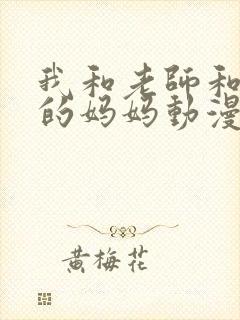 我和老師和
的妈妈動漫
黄梅花